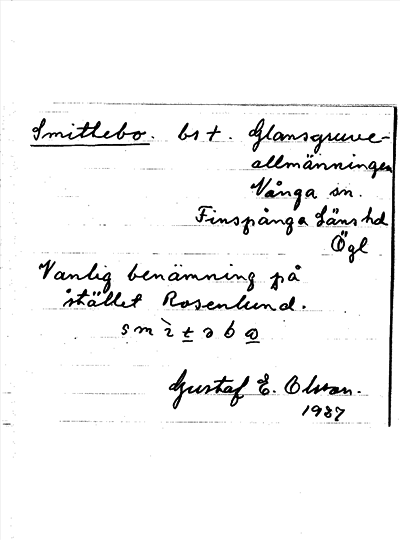 Smittebo. bst. Glansgruve-
allmänningen
Vånga sn.
Finspånga Läns hd
Ögl
Vanlig benämning på
stället Rosenlund.
Gustaf E. Olsson.
1937